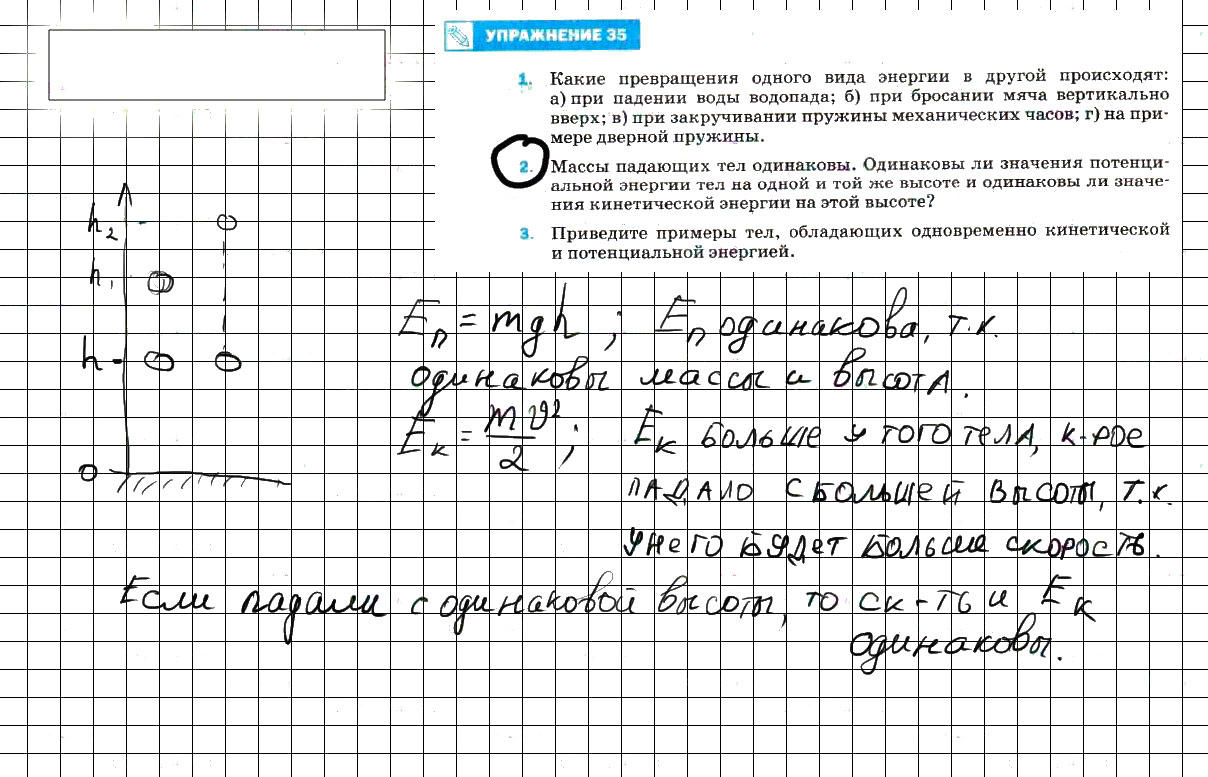 УПРАЖНЕНИЕ 35
1. Какие превращения одного вида энергии в другой происходят:
а) при падении воды водопада; б) при бросании мяча вертикально
вверх; в) при закручивании пружины механических часов; г) на при-
мере дверной пружины.
2. Массы падающих тел одинаковы. Одинаковы ли значения потенци-
альной энергии тел на одной и той же высоте и одинаковы ли значе-
ния кинетической энергии на этой высоте?
3. Приведите примеры тел, обладающих одновременно кинетической
и потенциальной энергией.
h₂
h₁
h
0
Eп = mgh ; Eп одинакова, т.к.
одинаковы массы и высота.
Eк = mϑ²/2 ; Eк больше у того тела, к-рое
падало с большей высоты, т.к.
у него будет больше скорость.
Если падали с одинаковой высоты, то ск-ть и Eк
одинаковы.